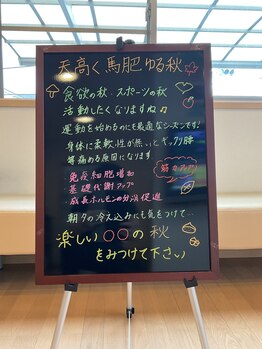 天高く馬肥ゆる秋
食欲の秋・スポーツの秋
活動したくなりますね♪
運動を始めるのにも最適なシーズンです!
身体に柔軟性が無いとギックリ腰
等痛める原因になります
・免疫細胞増加
・基礎代謝アップ
・成長ホルモンの分泌促進
筋力アップ
朝夕の冷え込みにも気をつけて…
楽しい○○の秋
をみつけて下さい